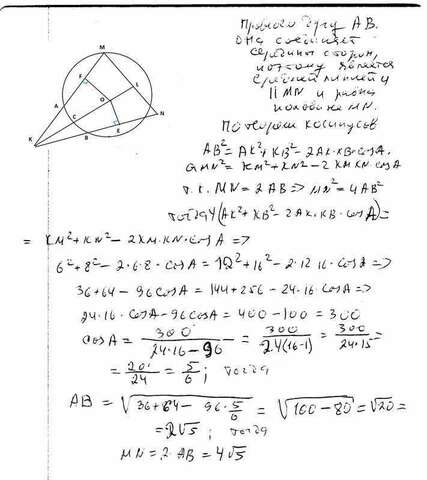 M
F
L
O
A
C
N
B
E
K
Провего дугу АВ.
Она соединяет
середины сторон,
поэтому является
средней линией и
|| MN и равна
половине MN.
По теореме косинусов
AB² = AK² + KB² - 2AK·KB·cosA.
MN² = KM² + KN² - 2 KM KN cosA
т.к. MN = 2AB => MN² = 4AB²
тогда 4(AK² + KB² - 2AK·KB·cosA) =
= KM² + KN² - 2KM·KN·cosA =>
6² + 8² - 2·6·8·cosA = 12² + 16² - 2·12 16·cosA =>
36 + 64 - 96cosA = 144 + 256 - 24·16·cosA =>
24·16·cosA - 96cosA = 400 - 100 = 300
cosA = 300/(24·16 - 96) = 300/(24(16-1)) = 300/(24·15) =
= 20/24 = 5/6; тогда
AB = √(36 + 64 - 96·5/6) = √(100 - 80) = √20 =
= 2√5; тогда
MN = 2·AB = 4√5